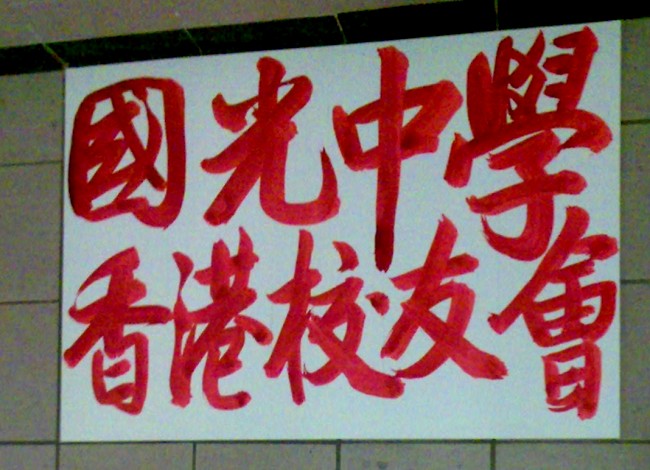 國光中學
香港校友會